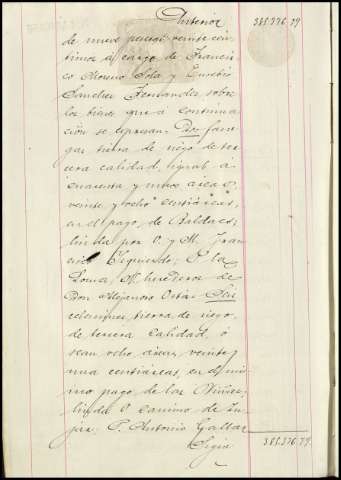 Anterior 385.376.79
de nueve pesetas veinte cén-
timos á cargo de Francis-
co Moreno Sola y Eusebio
Sanchez Fernandez sobre
los bienes que á continua-
ción se expresan. Dos fane-
gas tierra de riego de ter-
cera calidad, igual á
cuarenta y nueve áreas,
veinte y ocho centiáreas,
en el pago de
linda por O. y M. Fran-
cisco Izquierdo; P. la
Loma, N. herederos de
Don Alejandro Seis
celemines tierra de riego,
de tercera calidad, ó
sean ocho áreas, veinte y
una centiáreas, en el mis-
mo pago de las
linda O. camino de
P. Antonio
Sigue 385.376.79.